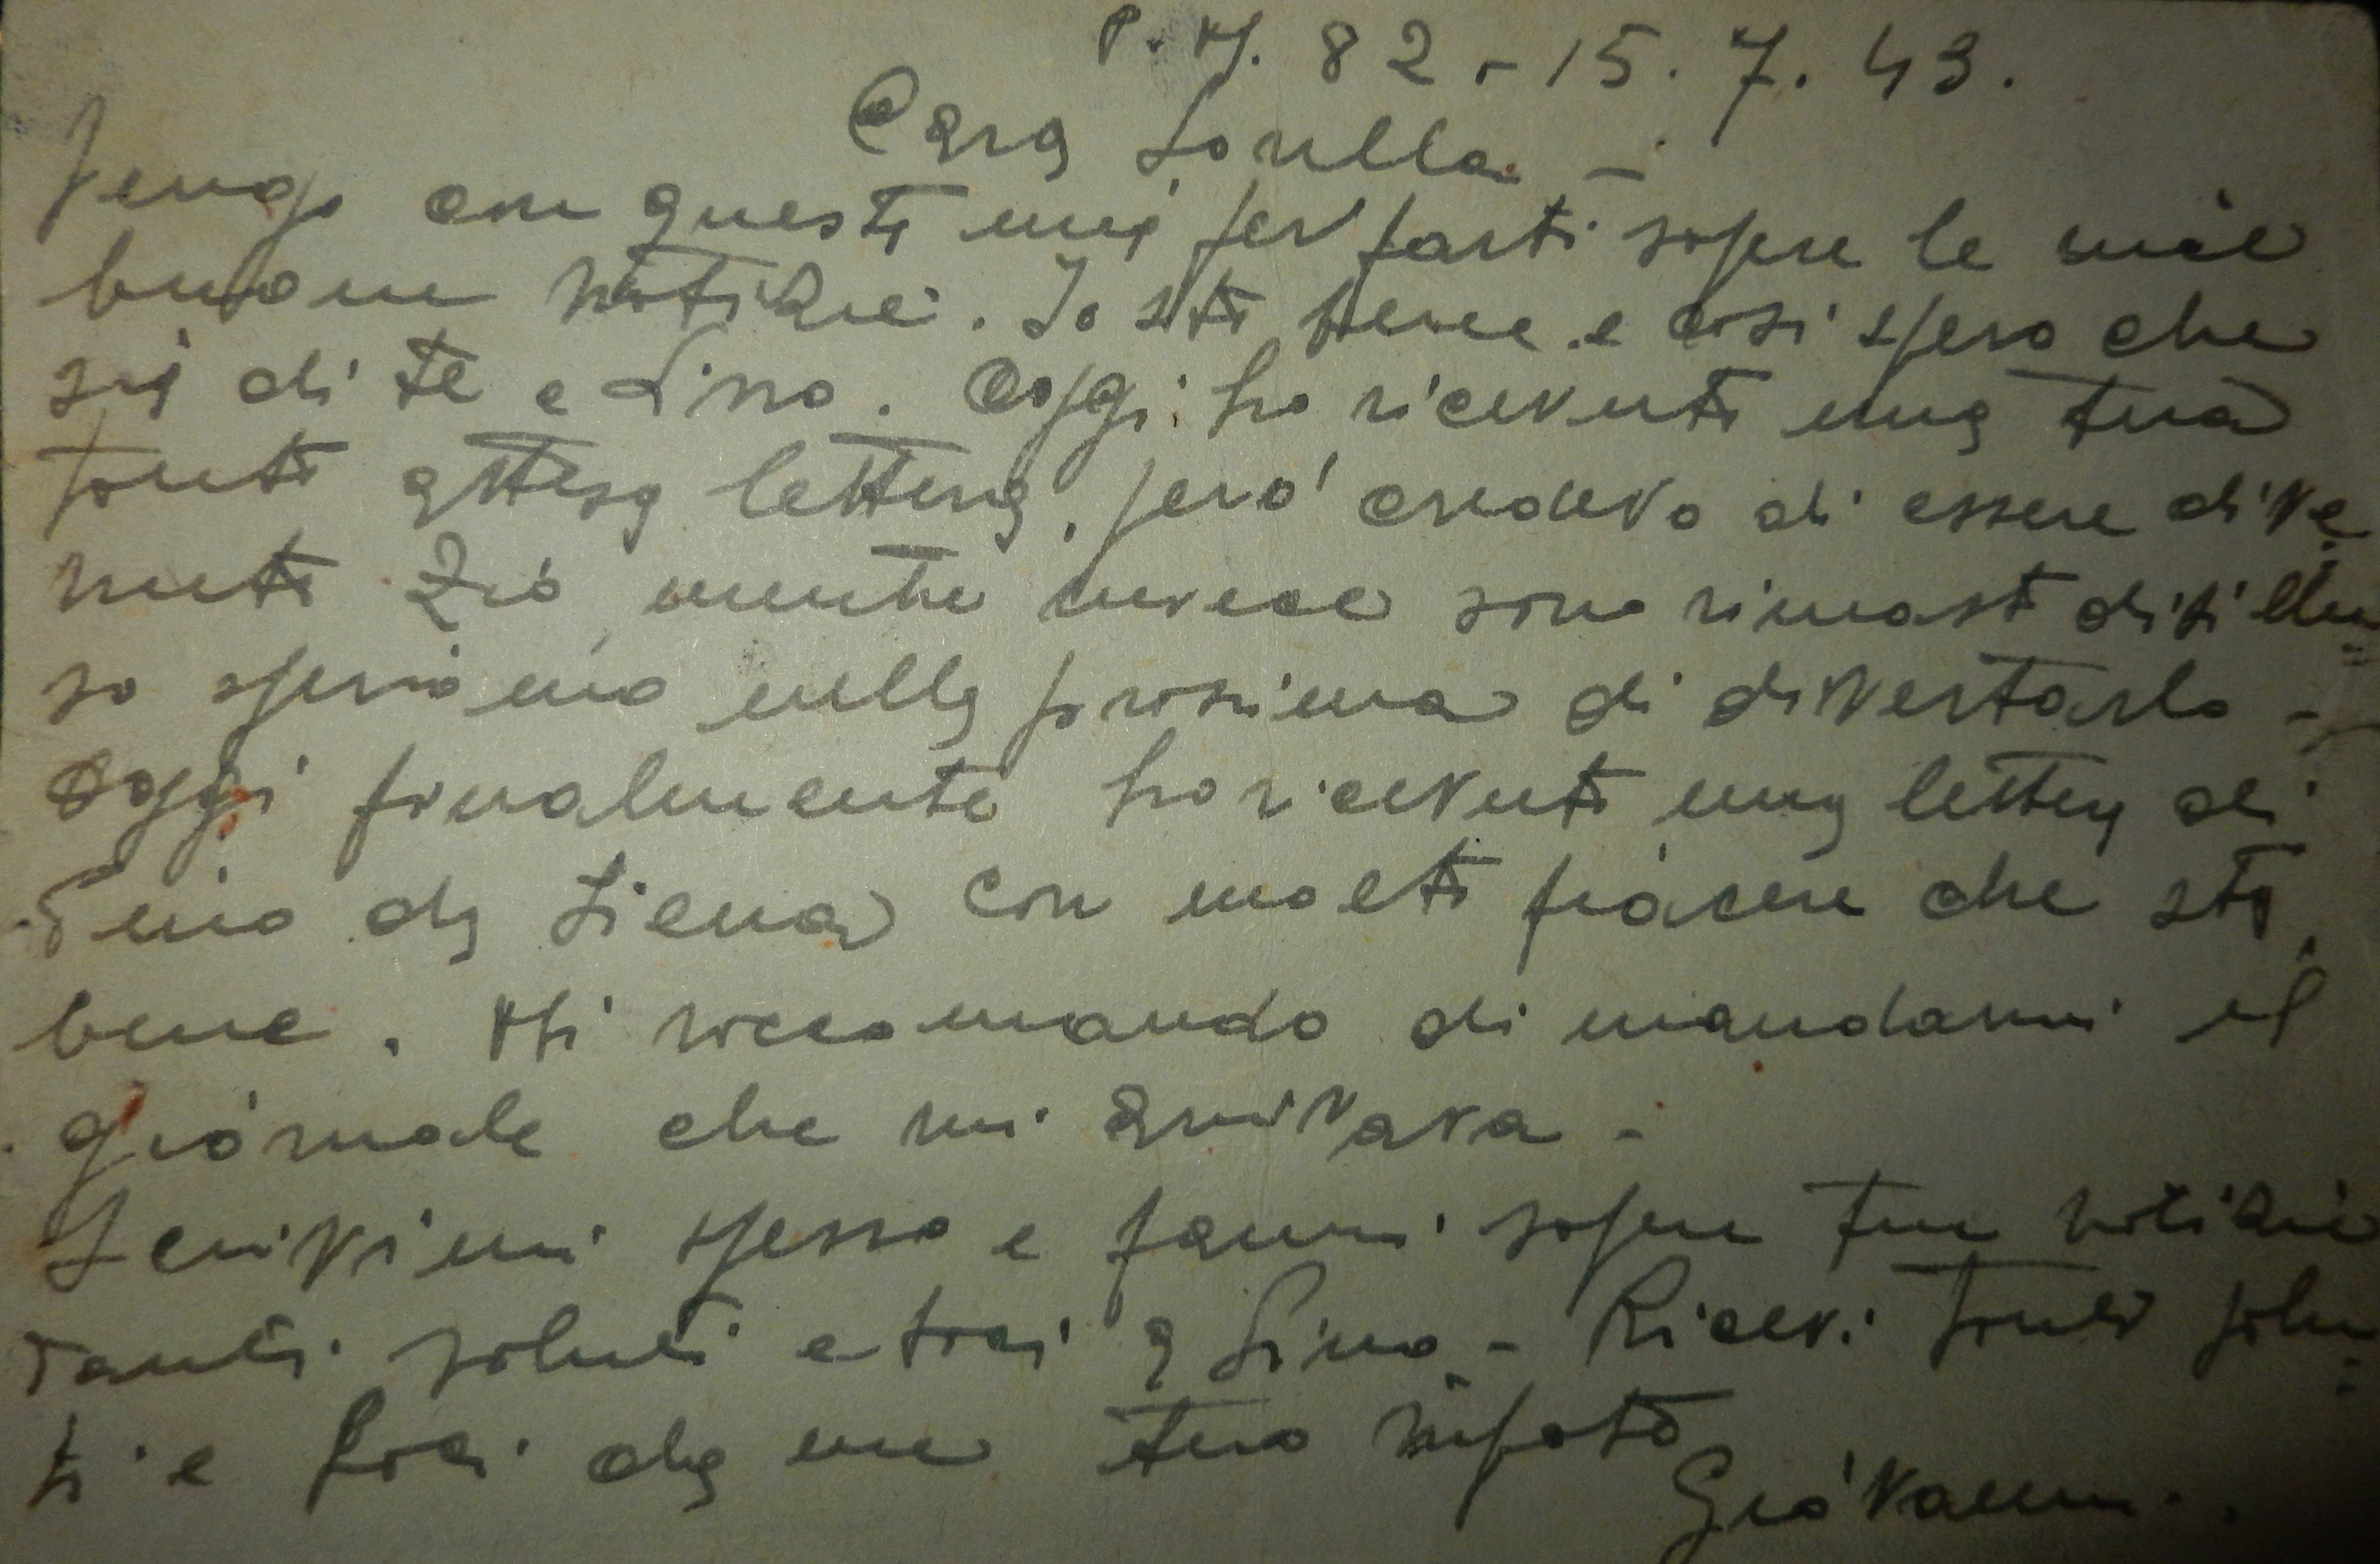 P.M. 82 - 15.7.43.
Cara Sorella -
Vengo con questa mia per farti sapere le mie
buone notizie. Io sto bene e così spero che
sia di te e Lino. Oggi ho ricevuto una tua
tanto attesa lettera, però credevo di essere dive
nuto zio, mentre invece sono rimasto disillu=
so speriamo nella prossima di diventarlo -
Oggi finalmente ho ricevuto una lettera di
da Siena con molto piacere che sta
bene. Mi raccomando di mandarmi il
giornale che mi arrivava -
Scrivimi spesso e fammi sapere tue notizie
Tanti saluti e baci a Lino - Ricevi tanti salu=
ti e baci da me tuo
Giovanni.